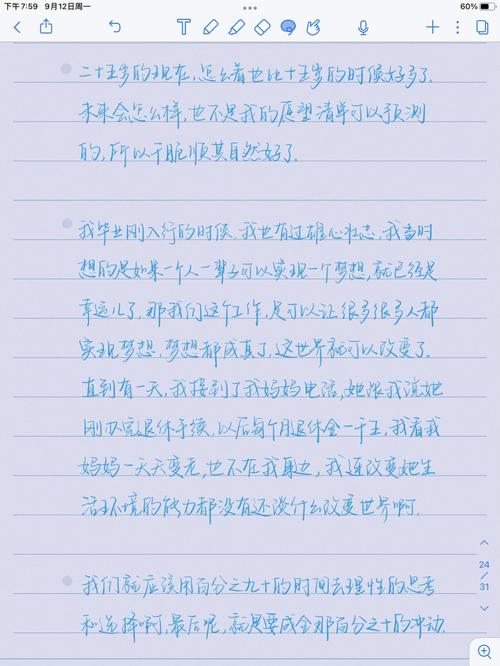 下午7:59 9月12日周一
60%
二十五岁的现在,怎么着也比十五岁的时候好多了.
未来会怎么样,也不是我的愿望清单可以预测
的,所以干脆顺其自然好了.
我毕业刚入行的时候.我也有过雄心壮志,我当时
想的是如果一个人一辈子可以实现一个梦想,就已经是
幸运儿了.那我们这个工作,是可以让很多很多人都
实现梦想,梦想都成真了,这世界就可以改变了.
直到有一天,我接到了我妈妈电话,她跟我说她
刚办完退休手续,以后每个月退休金一千五,我看我
妈妈一天天变老,也不在我身边,我连改变她生
活环境的能力都没有还谈什么改变世界啊.
24
/
31
我们就应该用百分之九十的时间去理性的思考
和选择啊,最后呢,就是要成全那百分之十的冲动.